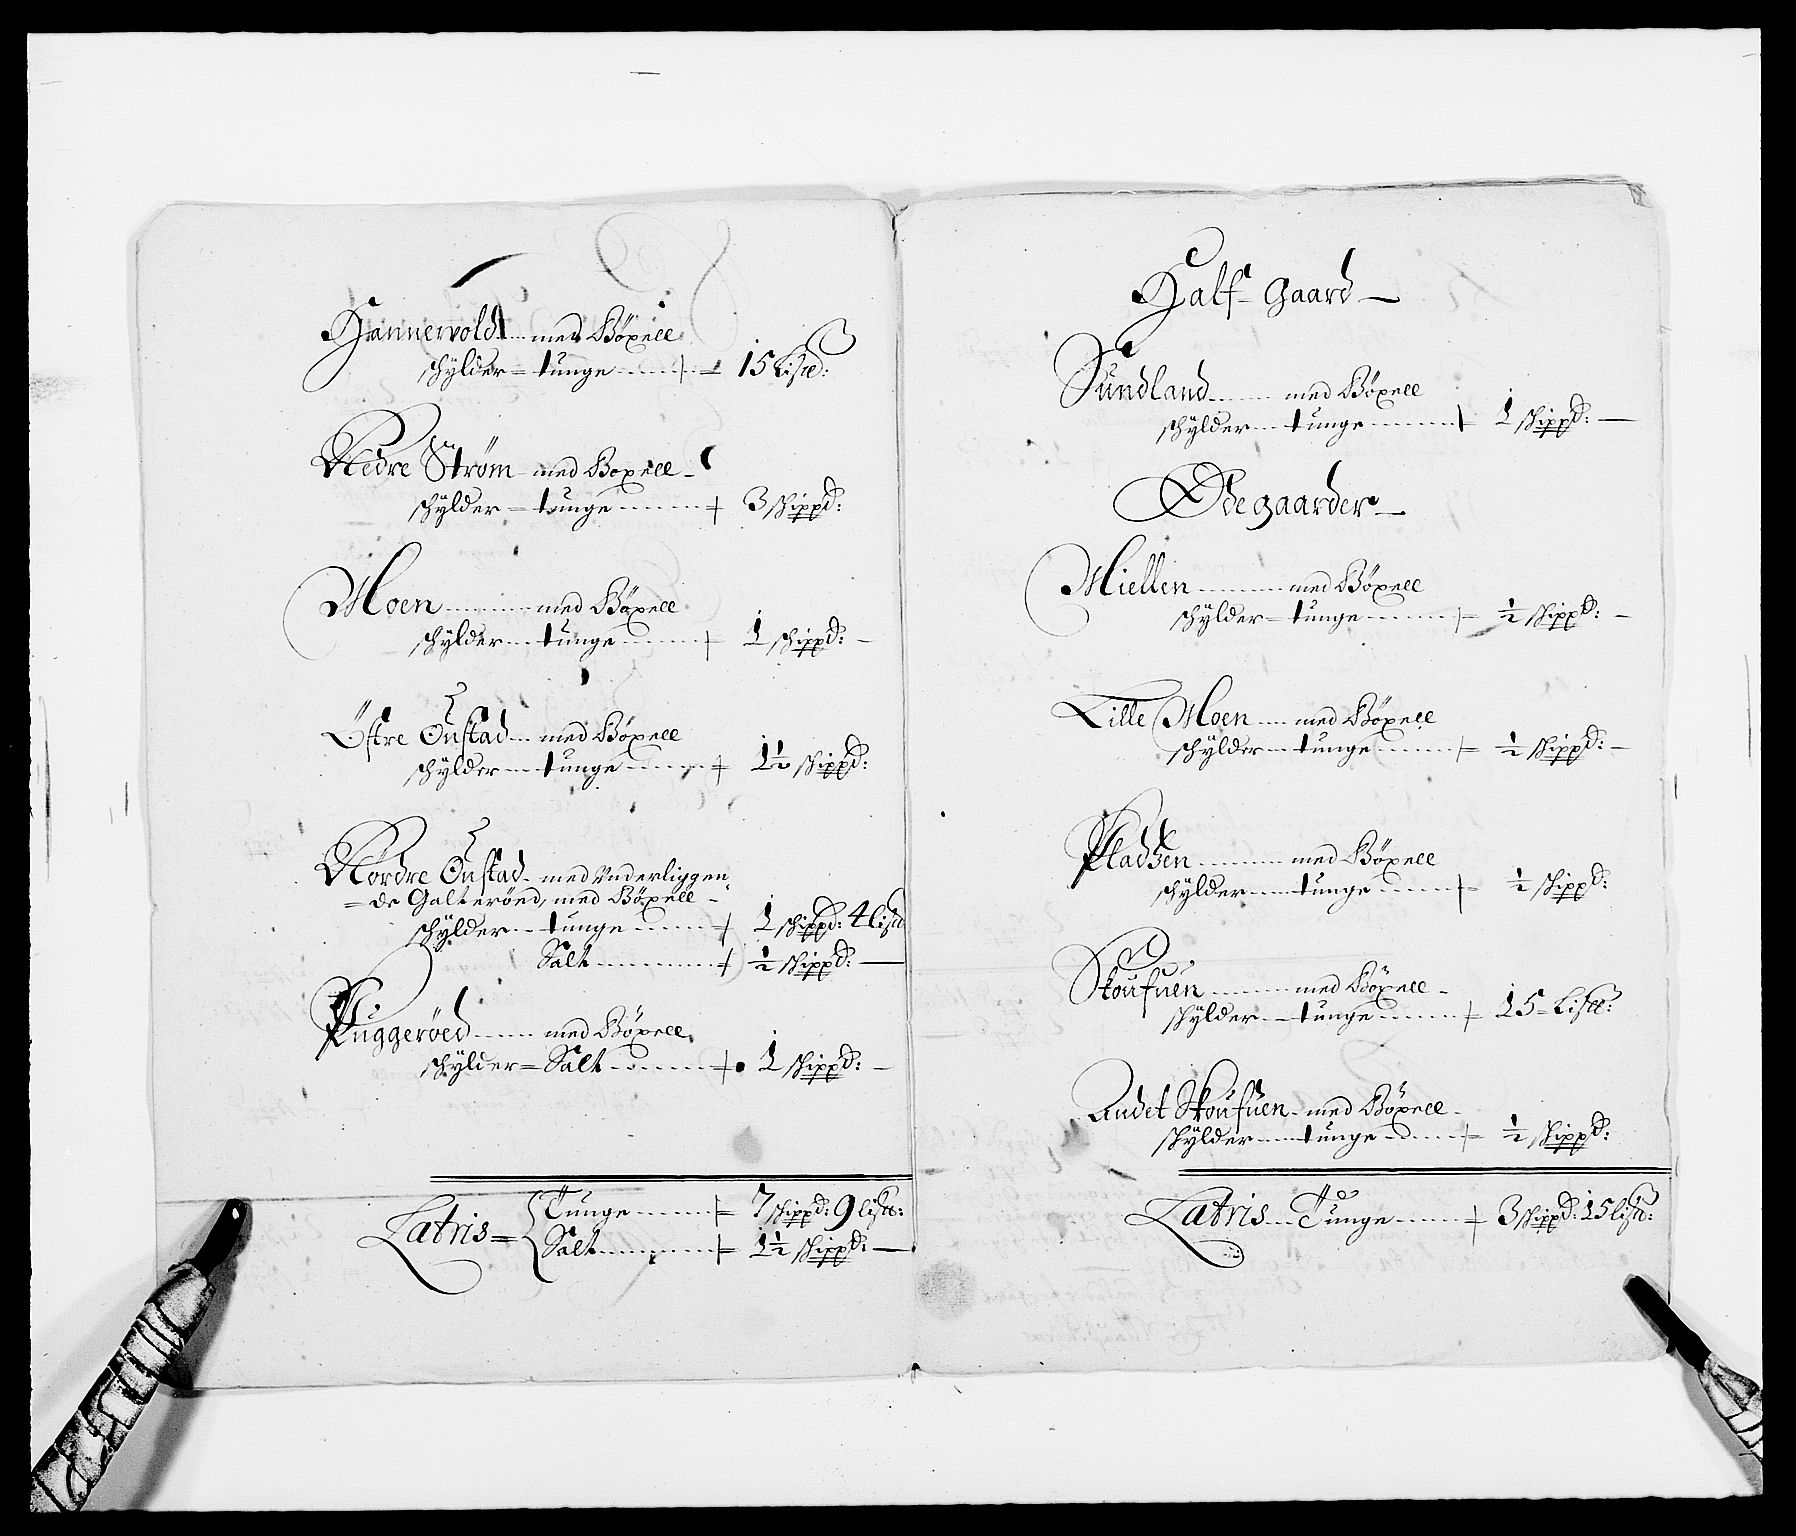 Hannevoldt med Böxell
schÿlder tunge 15 Lispd:
Nedre Strøm med Boxell
schÿlder tunge 3 schippd:
Moen med Böxell
schÿlder tunge 1 schippd:
Östre Onstad med Böxell
schÿlder tunge 1½ schippd:
Nordre Onstad med Underliggen
=de Galteröed, med Böxell
schÿlder tunge 1 schippd: 4 lispd
Salt ½ schippd:
Puggeröed med Böxell
schÿlder Salt 1 schippd:
Latris Tunge 7 schippd: 9 lispd:
Salt 1½ schippd:
Half Gaard
Sundland med Böxell
schÿlder tunge 1 schippd:
Ødegaarder
Miellen med Böxell
schÿlder tunge ½ schippd:
Lille Moen med Böxell
schÿlder tunge ½ schippd:
Pladsen med Böxell
schÿlder tunge ½ schippd:
Skoufuen med Böxell
schÿlder tunge 15 Lispd:
Andet Skoufuen med Böxell
schÿlder tunge ½ schippd:
Latris Tunge 3 schippd: 15 lispd: